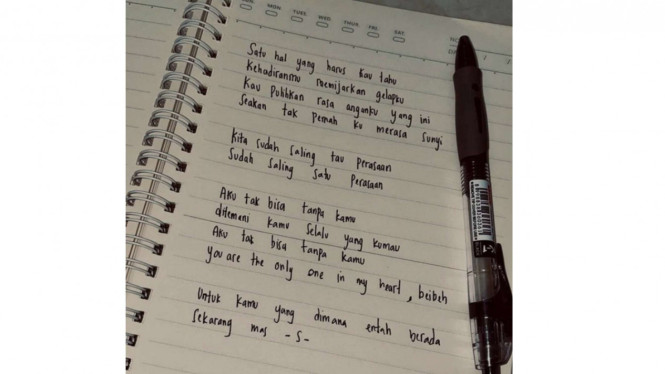 MON. TUES. WED. THUR. FRI. SAT.
Satu hal yang harus kau tahu
Kehadiranmu memijarkan gelapku
Kau pulihkan rasa anganku yang ini
Seakan tak pernah ku merasa sunyi
Kita sudah saling tau perasaan
Sudah saling satu perasaan
Aku tak bisa tanpa kamu
ditemani kamu selalu yang kumau
Aku tak bisa tanpa kamu
you are the only one in my heart, beibeh
Untuk kamu yang dimana entah berada
sekarang mas -S-